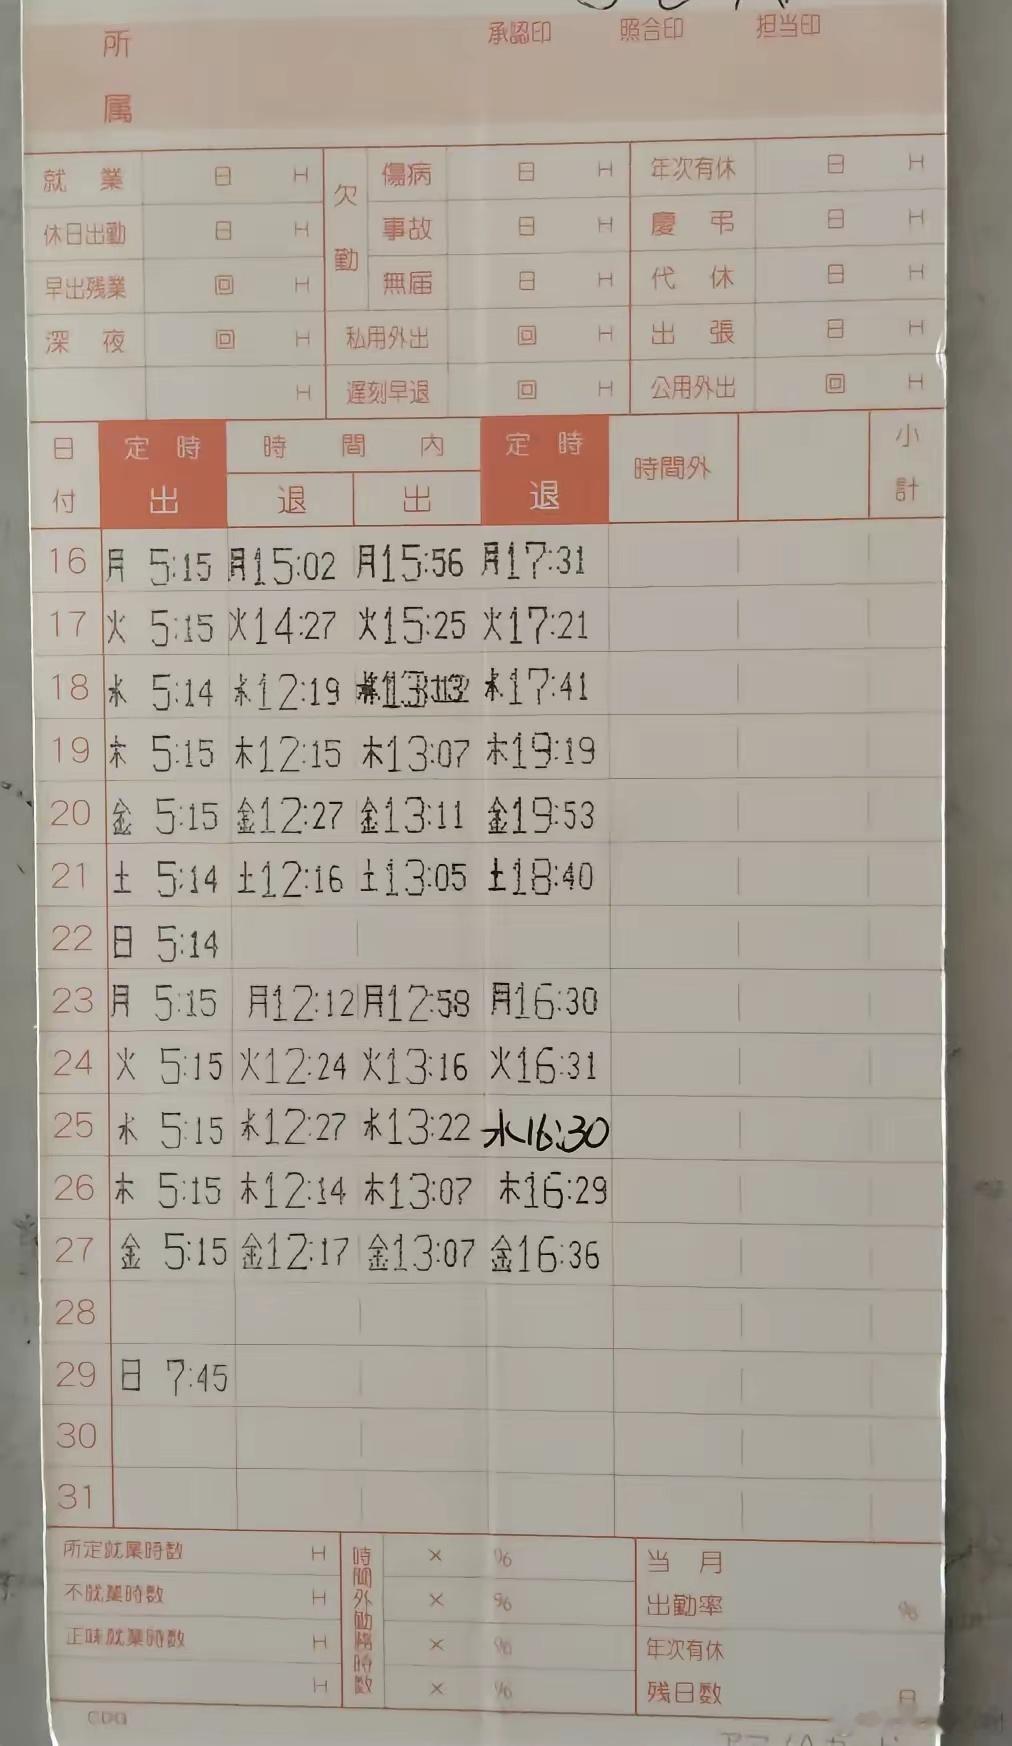 承認印 照合印 担当印
所
属
就業 日 H 欠勤 傷病 日 H 年次有休 日 H
休日出勤 日 H 事故 日 H 慶弔 日 H
早出残業 回 H 無届 日 H 代休 日 H
深夜 回 H 私用外出 回 H 出張 日 H
H 遅刻早退 回 H 公用外出 回 H
日付 定時 出 時間内 退 出 定時 退 時間外 小計
16 月 5:15 月15:02 月15:56 月17:31
17 火 5:15 火14:27 火15:25 火17:21
18 水 5:14 水12:19 水17:41
19 木 5:15 木12:15 木13:07 木19:19
20 金 5:15 金12:27 金13:11 金19:53
21 土 5:14 土12:16 土13:05 土18:40
22 日 5:14
23 月 5:15 月12:12 月12:58 月16:30
24 火 5:15 火12:24 火13:16 火16:31
25 水 5:15 水12:27 水13:22 水16:30
26 木 5:15 木12:14 木13:07 木16:29
27 金 5:15 金12:17 金13:07 金16:36
28
29 日 7:45
30
31
所定就業時数 H 時間外勤務時数 × % 当月
不就業時数 H × % 出勤率 %
正味就業時数 H × % 年次有休
H × % 残日数 日